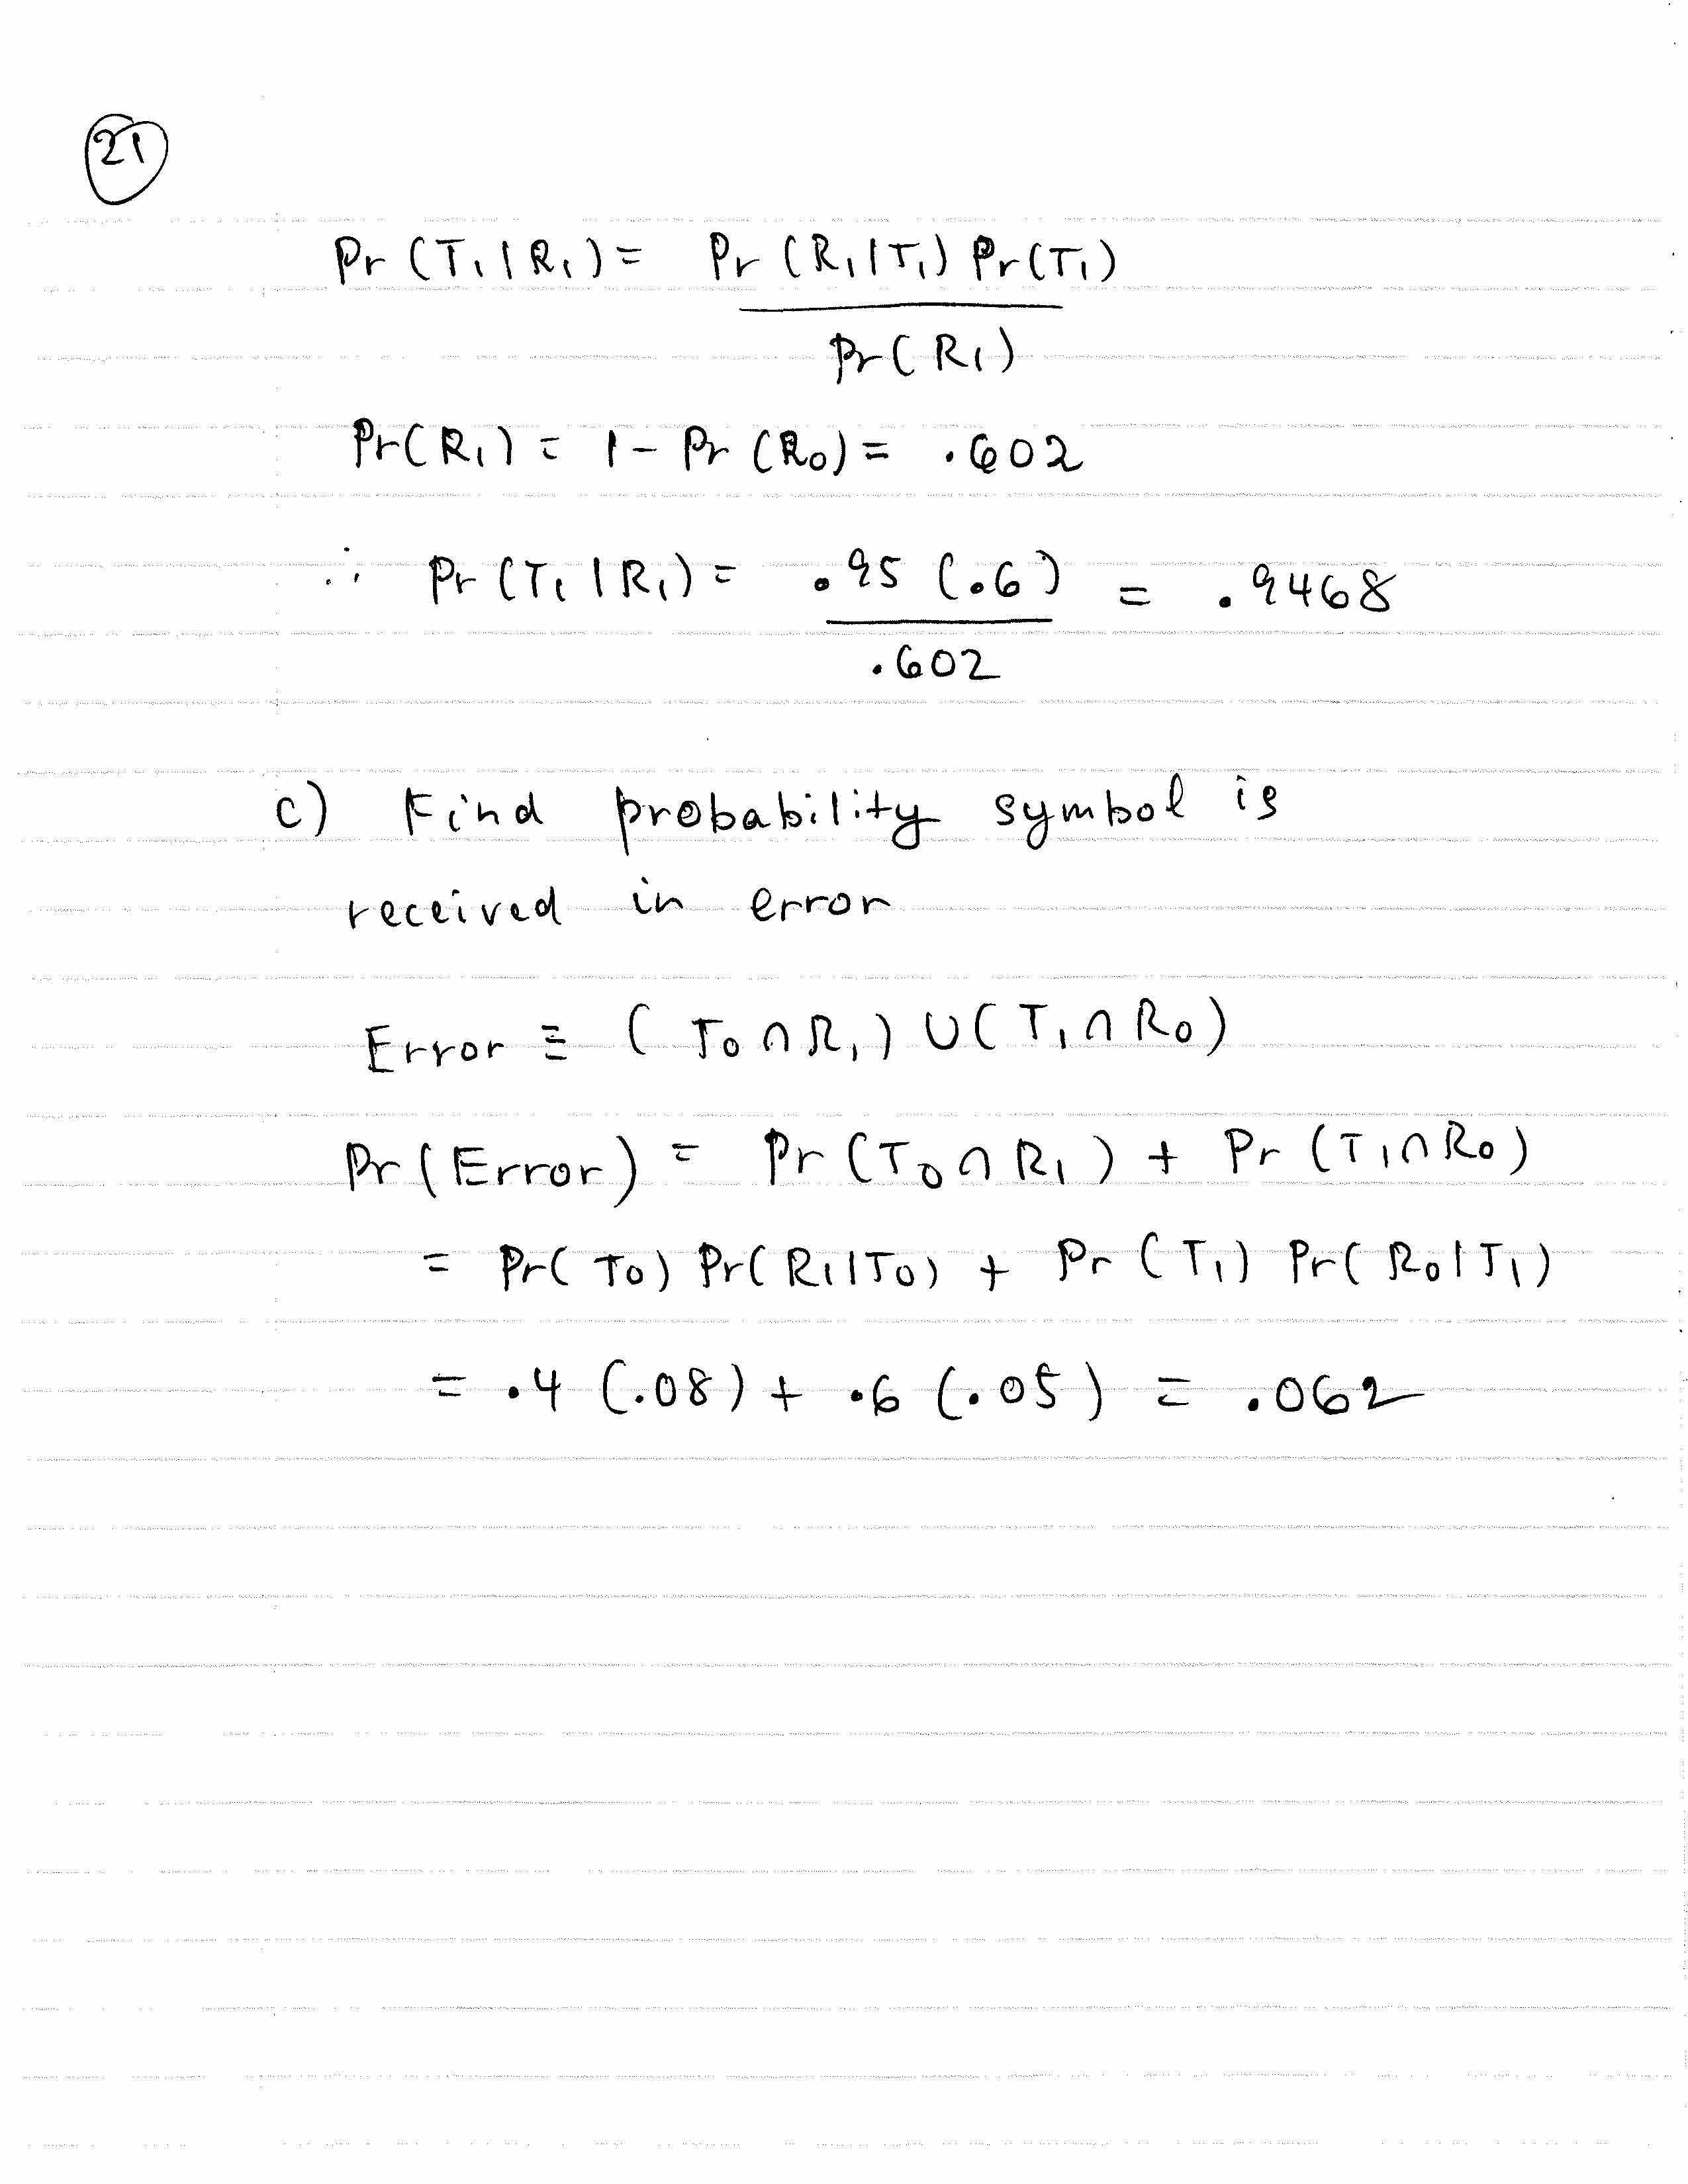 21
Pr (T₁ | R₁) = Pr (R₁ | T₁) Pr(T₁)
Pr (R₁)
Pr(R₁) = 1 - Pr (R₀) = .602
∴ Pr (T₁ | R₁) = .95 (.6) = .9468
.602
c) Find probability symbol is
received in error
Error ≡ (T₀ ∩ R₁) ∪ (T₁ ∩ R₀)
Pr (Error) = Pr (T₀ ∩ R₁) + Pr (T₁ ∩ R₀)
= Pr(T₀) Pr(R₁ | T₀) + Pr (T₁) Pr(R₀ | T₁)
= .4 (.08) + .6 (.05) = .062